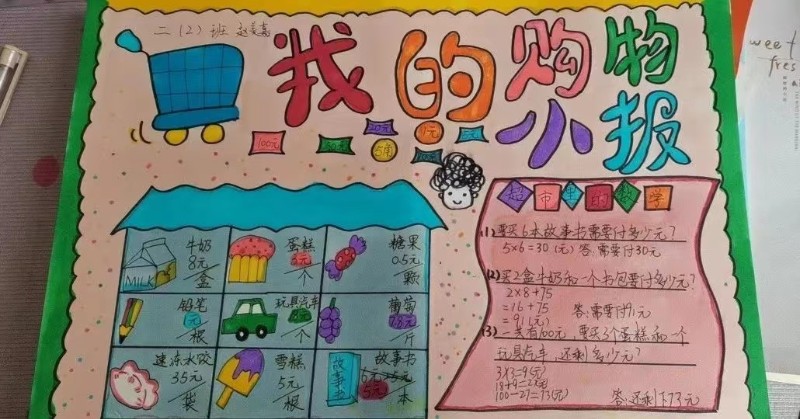 二（2）班
我的购物
小报
100元
20元
超市里的数学
牛奶
8元
盒
MILK
蛋糕
个
糖果
0.5元
颗
铅笔
元
根
玩具汽车
个
葡萄
斤
速冻水饺
35元
袋
雪糕
5元
根
故事书
故事书
5元
本
(1)要买6本故事书需要付多少元?
5×6=30(元) 答:需要付30元
(2)买2盒牛奶和一个书包要付多少元?
2×8+75
=16+75 答:需要付91元
=91(元)
(3)一共有100元,要买3个蛋糕和一个
玩具汽车,还剩多少元?
3×3=9(元)
18+9=27(元)
100-27=73(元) 答:还剩下73元